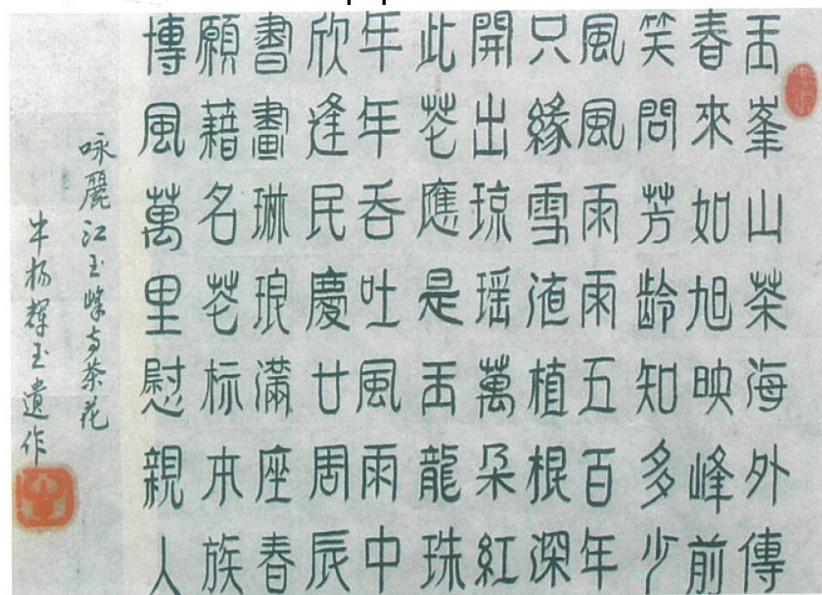 玉峯山茶海外傳
春來如旭映峰前
笑問芳齡知多少
風風雨雨五百年
只緣雪渣植根深
開出琼瑶萬朵紅
此花應是玉龍珠
年年吞吐風雨中
欣逢民慶廿周辰
書畫琳琅滿座春
願藉名花标本族
博風萬里慰親人
咏麗江玉峰寺茶花
牛杨輝玉遺作